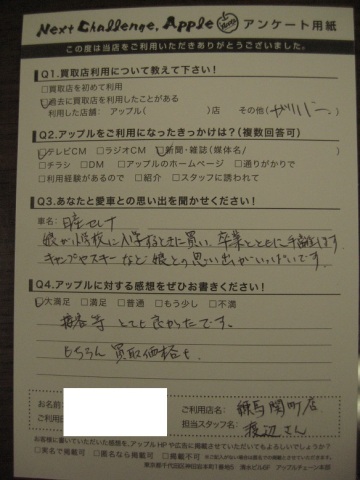 Next Challenge, Apple アンケート用紙
この度は当店をご利用いただきありがとうございました。
Q1.買取店利用について教えて下さい!
□買取店を初めて利用
☑過去に買取店を利用したことがある
利用した店舗: アップル( )店 その他(ガリバー)
Q2.アップルをご利用になったきっかけは?(複数回答可)
☑テレビCM □ラジオCM ☑新聞・雑誌(媒体名/ )
□チラシ □DM □アップルのホームページ □通りがかりで
□利用経験があるので □紹介 □スタッフに誘われて
Q3.あなたと愛車との思い出を聞かせください!
車名: 日産セレナ
娘が小学校に入学するときに買い、卒業とともに手離します。
キャンプやスキーなど娘との思い出がいっぱいです。
Q4.アップルに対する感想をぜひお書きください!
☑大満足 □満足 □普通 □もう少し □不満
接客等 とても良かったです。
もちろん 買取価格も。
お名前
ご利用日
ご利用店名: 練馬関町店
担当スタッフ名: 渡辺さん
お客様に書いていただいた感想を、アップルHPや広告に掲載させていただいてもよろしいでしょうか?
□実名で掲載可 □匿名なら掲載可 □掲載不可
東京都千代田区神田佐久間町1番地5 清水ビル6F アップルチェーン本部